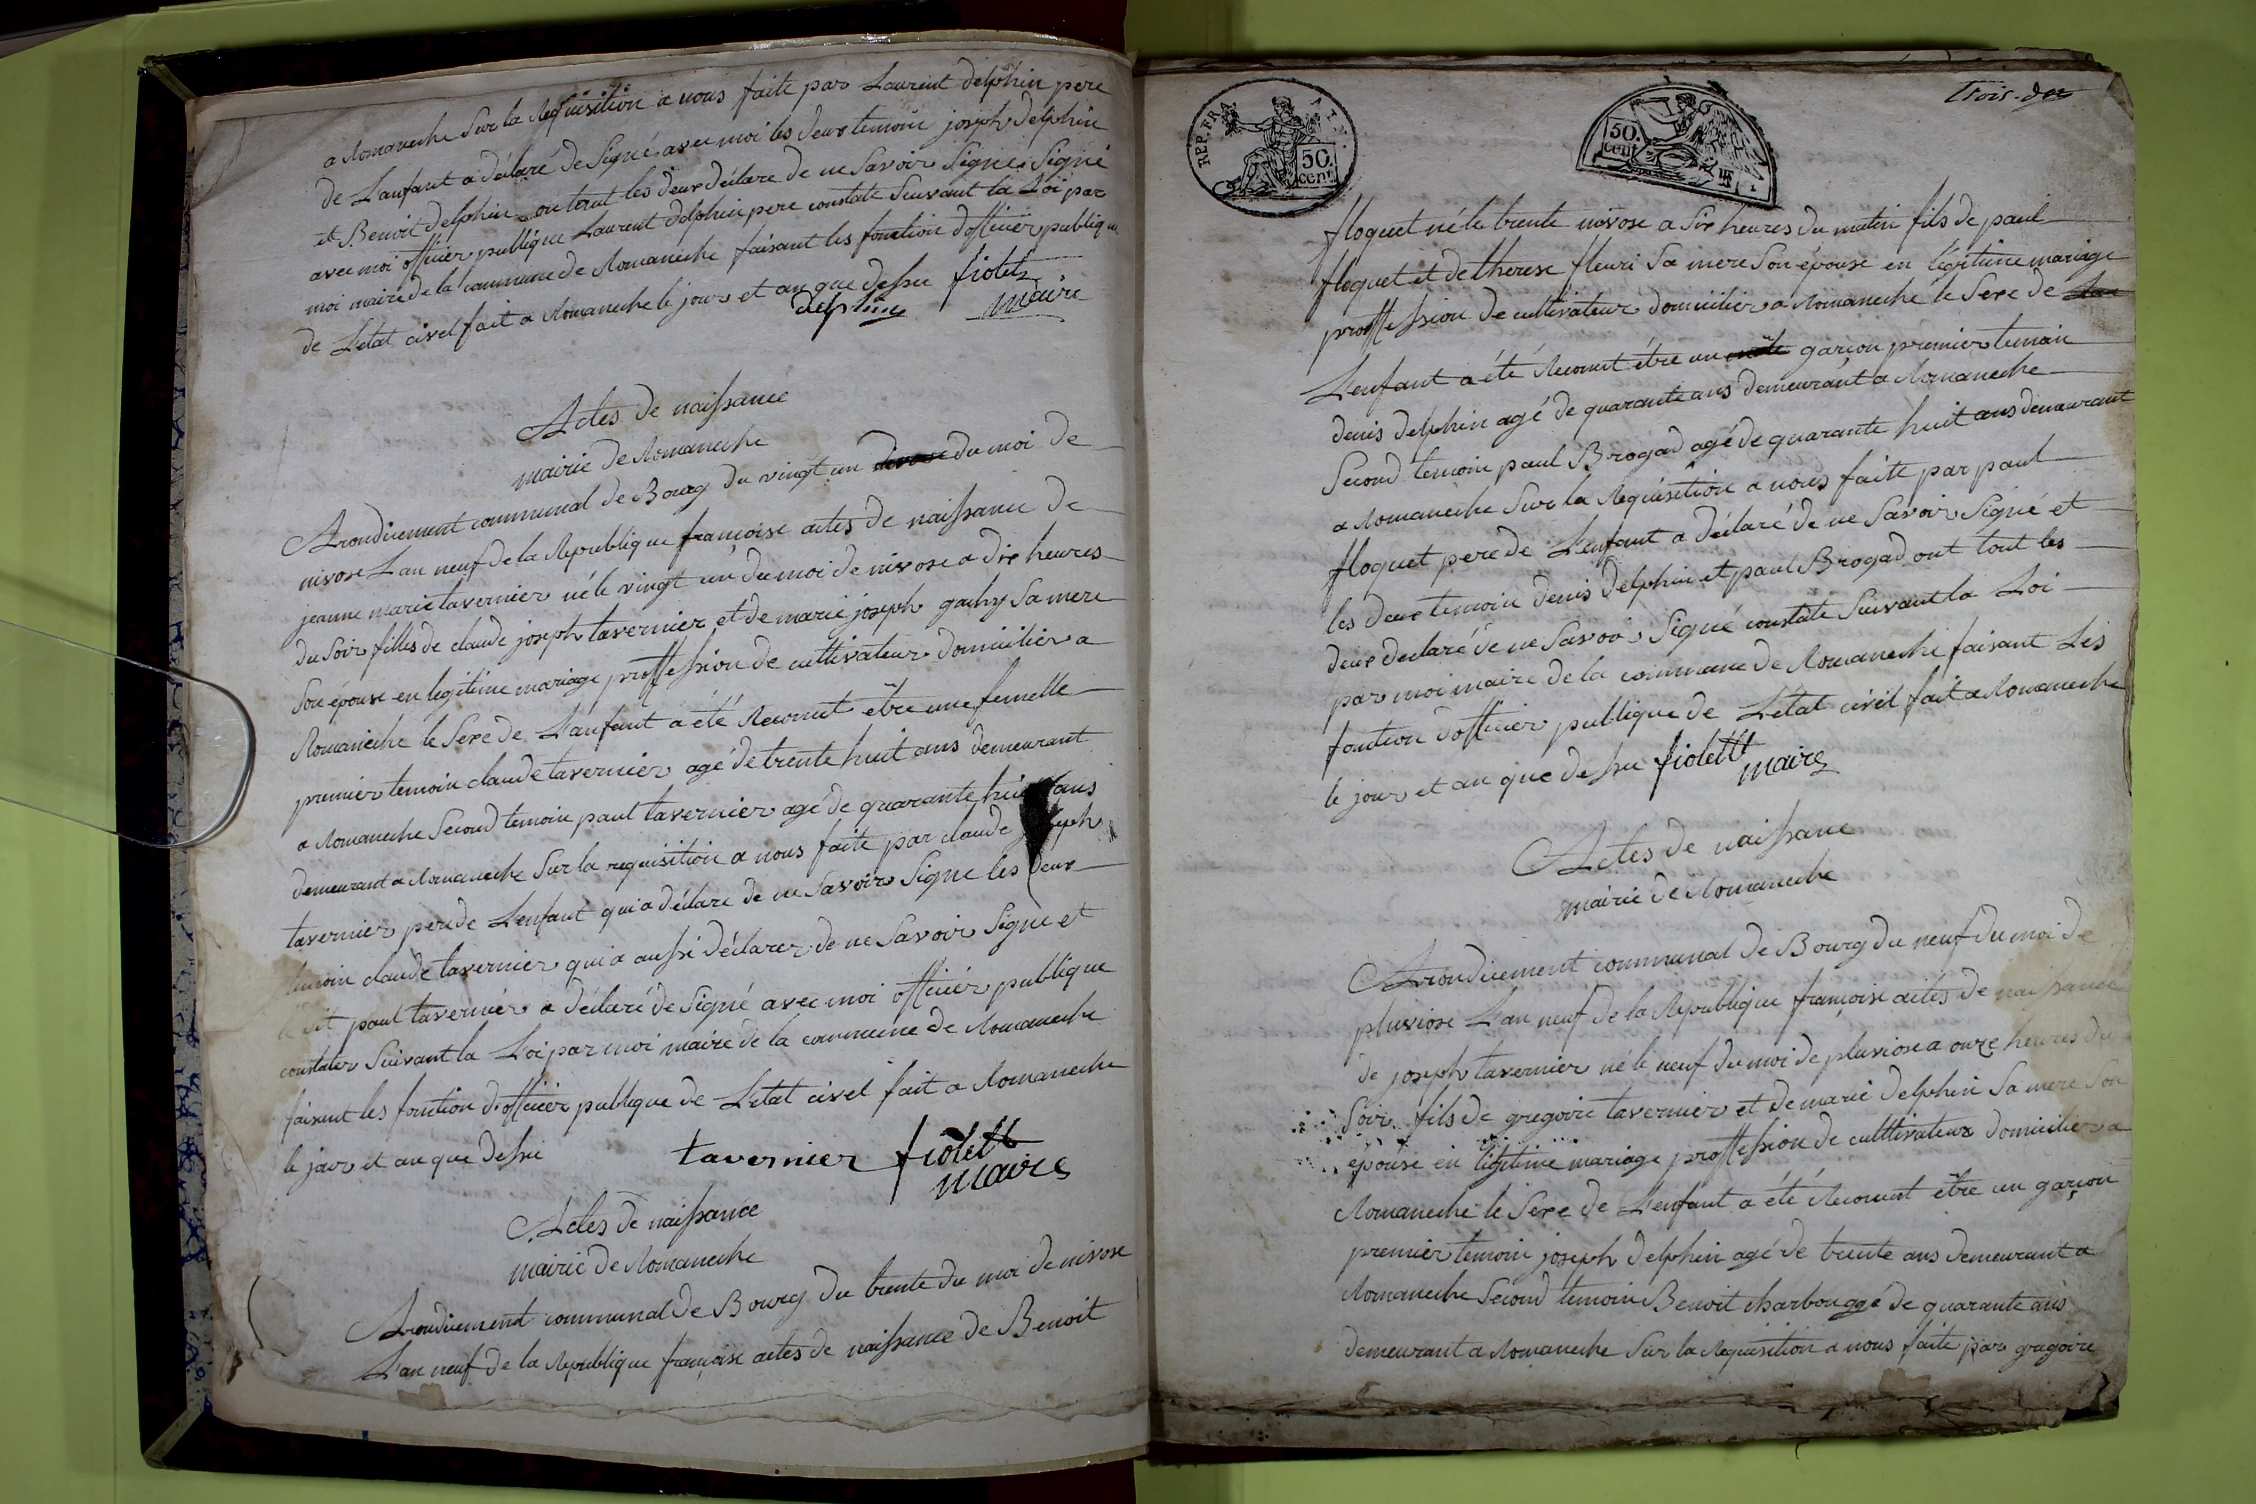 a Romaneche Sur la Requisition a nous faite par Laurent delphin pere
de L'anfant a déclaré de Signé avec moi les deux temoin joseph delphin
et Benoit delphin ont tout les deux déclare de ne Savoir Signé Signé
avec moi officier publique Laurent delphin pere constate Suivant la Loi par
moi maire de la commune de Romaneche faisant les fonction d'officier publique
de L'etat civel fait a Romaneche le jour et an que dessu fiolet
delphin maire
Actes de naissance
mairie de Romaneche
Arrondicement communal de Bourg du vingt un du moi de
nivose L'an neuf de la Republique francoise actes de naissance de
jeanne marie tavernier né le vingt un du moi de nivose a dix heures
du Soir filles de claude joseph tavernier et de marie joseph gachy Sa mere
Son épouse en legitime mariage proffession de cultivateur domicilier a
Romaneche le Sexe de L'anfant a été Reconut être une femelle
premier temoin claude tavernier agé de trente huit ans demeurant
a Romaneche Second temoin paul tavernier agé de quarante huit ans
demeurant a Romaneche Sur la requisition a nous faite par claude joseph
tavernier pere de L'enfant qui a déclare de ne Savoir Signe les deux
temoin claude tavernier qui a aussi déclarer de ne Savoir Signe et
le dit paul tavernier a déclaré de Signé avec moi officier publique
constater Suivant la Loi par moi maire de la commune de Romaneche
faisant les fonction d'officier publique de L'etat civel fait a Romaneche
le jour et an que dessu tavernier fiolett
maire
Actes de naissance
mairie de Romaneche
Arrondicement communal de Bourg du trente du moi de nivose
L'an neuf de la Republique françoise actes de naissance de Benoit
REP. FRA
50.
cent.
50.
cent.
trois
floquet né le trente nivose a Six heures du matin fils de paul
floquet et de therese fleuri Sa mere Son épouse en légitime mariage
proffession de cultivateur domicilier a Romaneche le Sexe de
L'enfant a été Reconut étre un garcon premier temoin
denis delphin agé de quarante ans demeurant a Romaneche
Second temoin paul Brogad agé de quarante huit ans demeurant
a Romaneche Sur la Requisition a nous faite par paul
floquet pere de L'enfant a déclaré de ne Savoir Signé et
les deux temoin denis delphin et paul Brogad ont tout les
deux declaré de ne Savoir Signé constate Suivant la Loi
par moi maire de la commune de Romaneche faisant Les
fonction d'officier publique de L'etat civil fait a Romaneche
le jour et an que dessu fiolett
maire
Actes de naissance
mairie de Romaneche
Arrondicement communal de Bourg du neuf du moi de
pluviose L'an neuf de la Republique françoise actes de naissance
de joseph tavernier né le neuf du moi de pluviose a onze heures du
Soir fils de gregoire tavernier et de marie delphin Sa mere Son
épouse en légitime mariage proffession de cultivateur domicilier a
Romaneche le Sexe de L'enfant a été Reconut être un garçon
premier temoin joseph delphin agé de trente ans demeurant a
Romaneche Second temoin Benoit charbon agé de quarante ans
demeurant a Romaneche Sur la Requisition a nous faite par gregoire